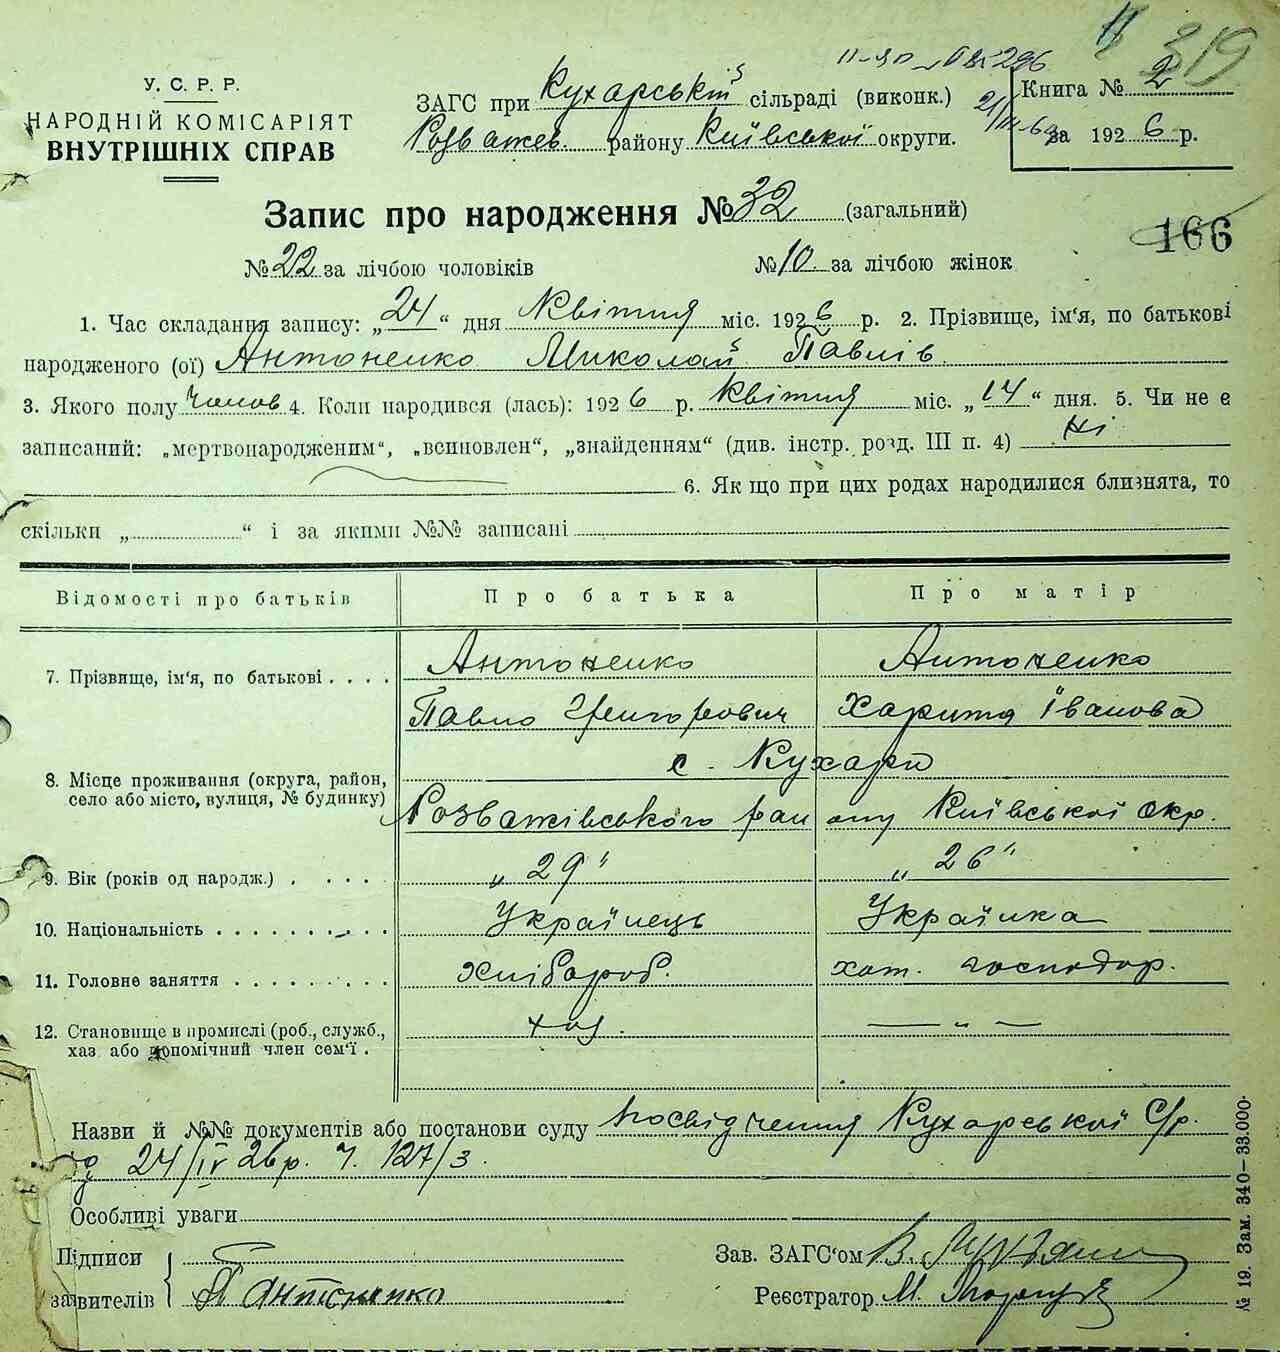 319
У. С. Р. Р.
НАРОДНІЙ КОМІСАРІЯТ
ВНУТРІШНІХ СПРАВ
ЗАГС при Кухарській сільраді (виконк.)
Розважев. району Київської округи.
Книга № 2
за 1926 р.
Запис про народження № 32 (загальний)
166
№ 22 за лічбою чоловіків № 10 за лічбою жінок
1. Час складання запису: „24“ дня Квітня міс. 1926 р. 2. Прізвище, ім‘я, по батькові
народженого (ої) Антоненко Миколай Павлів
3. Якого полу Чолов 4. Коли народився (лась): 1926 р. Квітня міс. „14“ дня. 5. Чи не є
записаний: „мертвонародженим“, „всиновлен“, „знайденням“ (див. інстр. розд. III п. 4) Ні
6. Якщо при цих родах народилися близнята, то
скільки „ “ і за якими №№ записані
Відомості про батьків Про батька Про матір
7. Прізвище, ім‘я, по батькові . . . . Антоненко Антоненко
Павло Григорович Харитя Іванова
8. Місце проживання (округа, район, село або місто, вулиця, № будинку) с. Кухари
Розважівського району Київської окр.
9. Вік (років од народж.) . . . . „29“ „26“
10. Національність . . . . . . . . . Українець Українка
11. Головне заняття . . . . . . . . . Хлібороб. хат. господар.
12. Становище в промислі (роб., служб.,
хаз. або допомічний член сем‘ї . хаз. — „ —
Назви й №№ документів або постанови суду Посвідчення Кухарської С/р.
від 24/IV 26 р. ч. 127/3.
Особливі уваги
Підписи
заявителів П Антоненко
Зав. ЗАГС‘ом В.
Реєстратор М.
№ 19. Зам. 340–33.000.